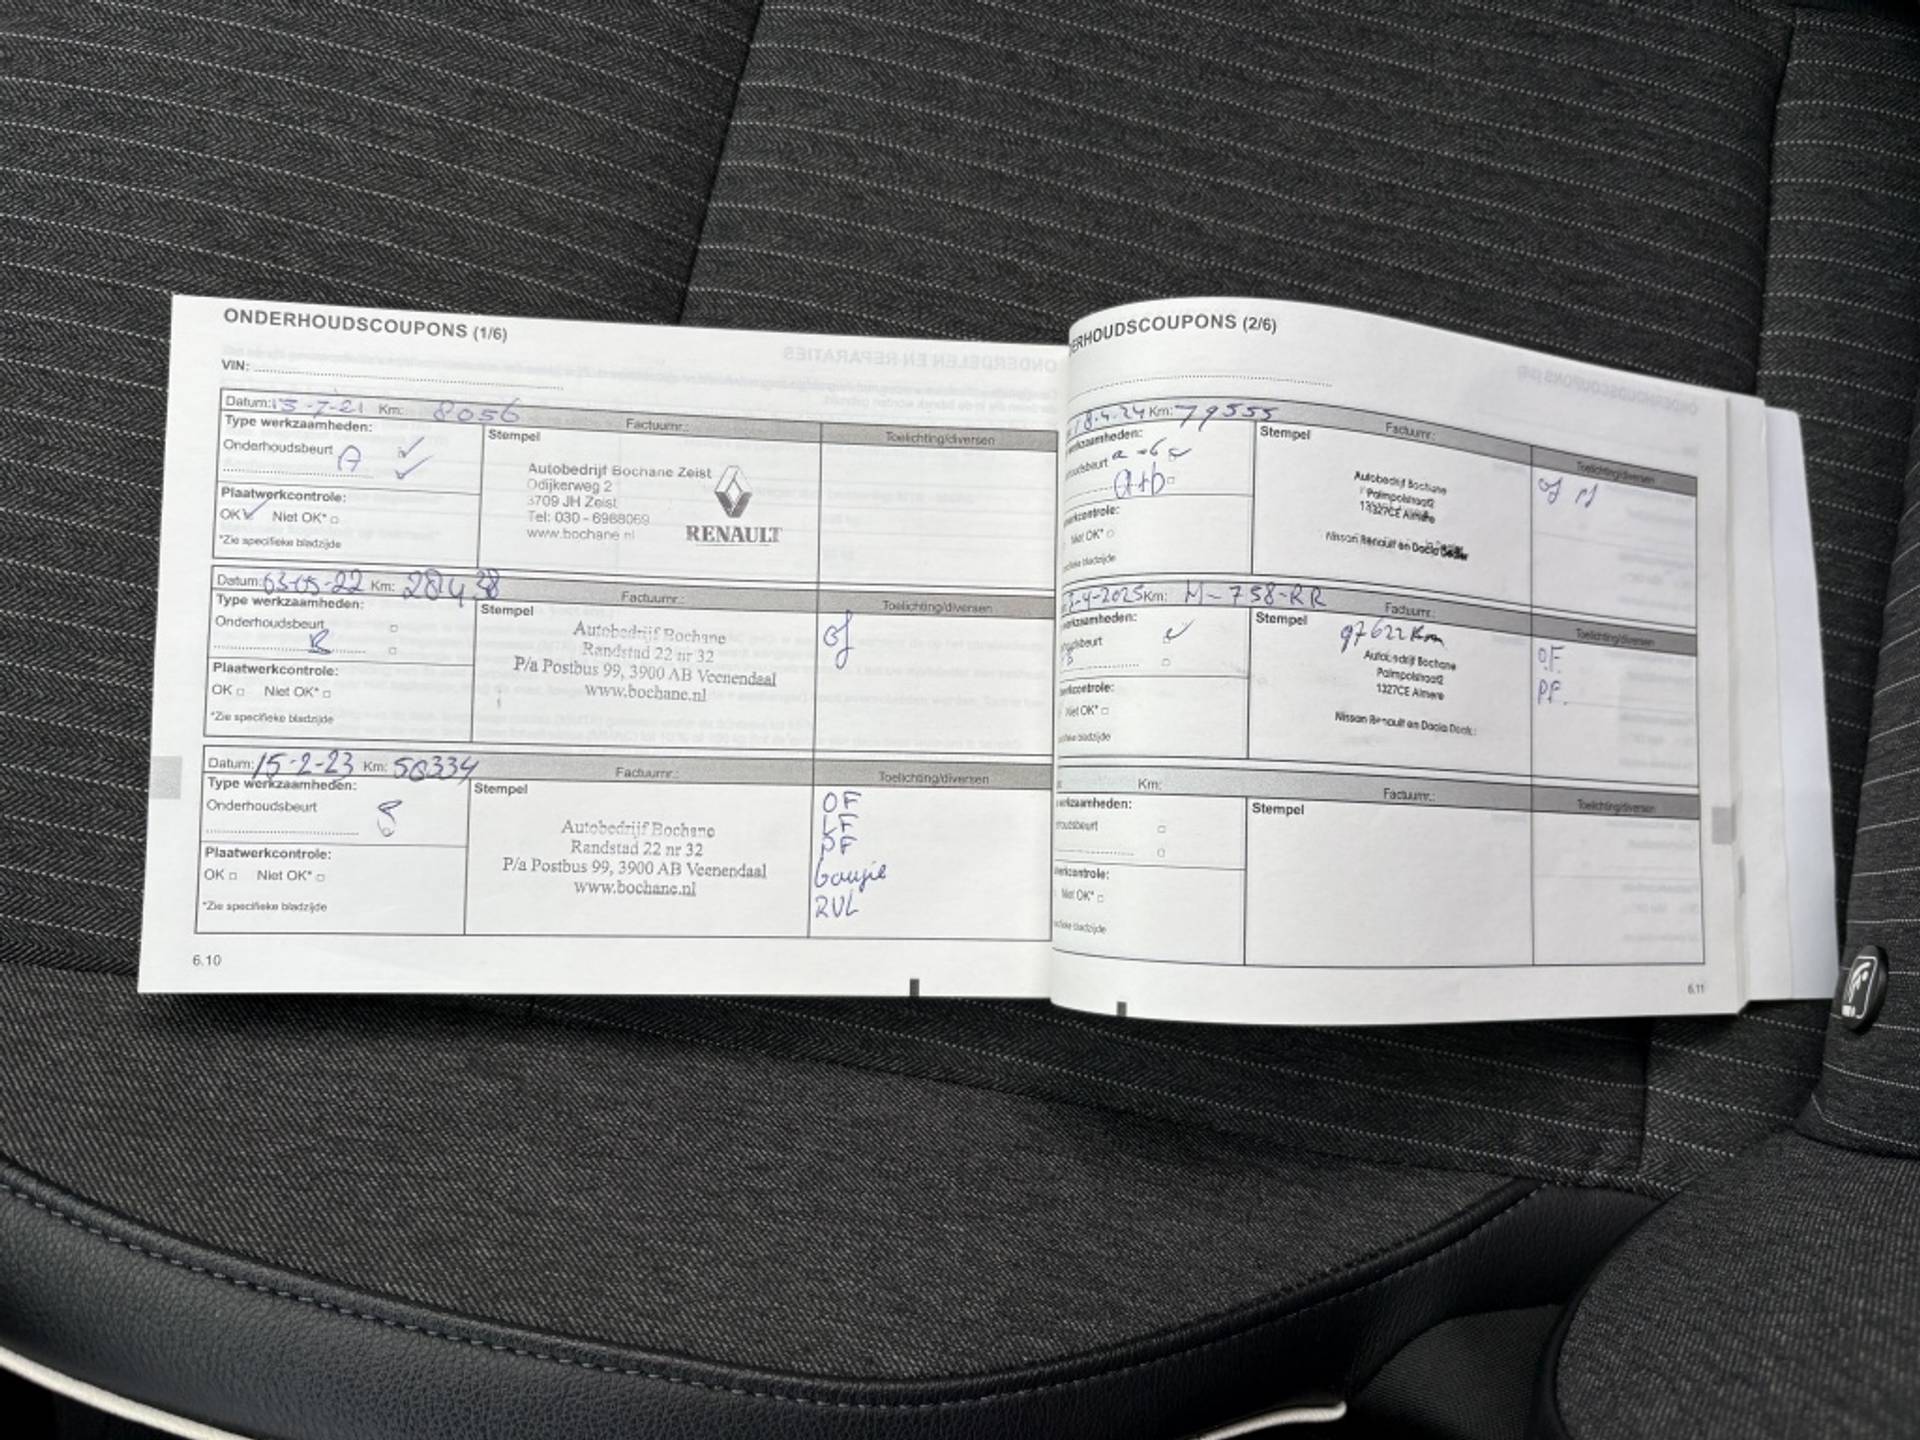 ONDERHOUDSCOUPONS (1/6)
VIN:
Datum: 15-7-21 Km: 8056
Type werkzaamheden:
Factuurnr.:
Toelichting/diversen
Onderhoudsbeurt A
Stempel
Autobedrijf Bochane Zeist
Odijkerweg 2
3709 JH Zeist
Tel: 030 - 6988069
www.bochane.nl
RENAULT
Plaatwerkcontrole:
OK Niet OK*
*Zie specifieke bladzijde
Datum: 03-05-22 Km: 28438
Type werkzaamheden:
Factuurnr.:
Toelichting/diversen
Onderhoudsbeurt
B
Stempel
Autobedrijf Bochane
Randstad 22 nr 32
P/a Postbus 99, 3900 AB Veenendaal
www.bochane.nl
of
Plaatwerkcontrole:
OK Niet OK*
*Zie specifieke bladzijde
Datum: 15-2-23 Km: 50334
Type werkzaamheden:
Factuurnr.:
Toelichting/diversen
Onderhoudsbeurt
Stempel
Autobedrijf Bochane
Randstad 22 nr 32
P/a Postbus 99, 3900 AB Veenendaal
www.bochane.nl
OF
PF
bougie
RVL
Plaatwerkcontrole:
OK Niet OK*
*Zie specifieke bladzijde
6.10
ERHOUDSCOUPONS (2/6)
18-4-24 Km: 79555
Factuurnr.:
Toelichting/diversen
werkzaamheden:
a+b
Stempel
Autobedrijf Bochane
Palmpolstraat2
1327CE Almere
Nissan Renault en Dacia Dealer
of pf
werkcontrole:
Niet OK*
-4-2025 Km: M-758-RR
Factuurnr.:
Toelichting/diversen
werkzaamheden:
Stempel
97622 Km
Autobedrijf Bochane
Palmpolstraat2
1327CE Almere
Nissan Renault en Dacia Deal
OF.
PF.
werkcontrole:
Niet OK*
Km:
Factuurnr.:
Toelichting/diversen
werkzaamheden:
Stempel
werkcontrole:
Niet OK*
6.11